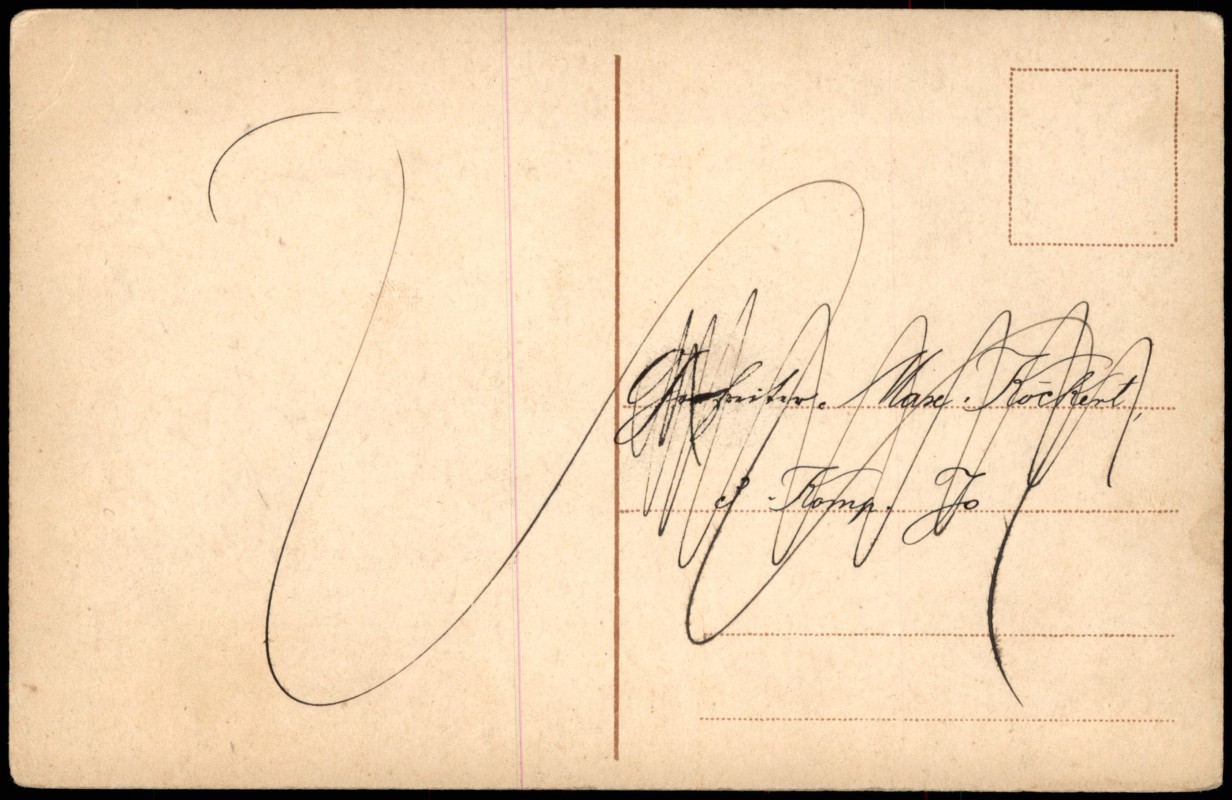 Gefreiter. Max. Röckert,
8. Komp. Jo